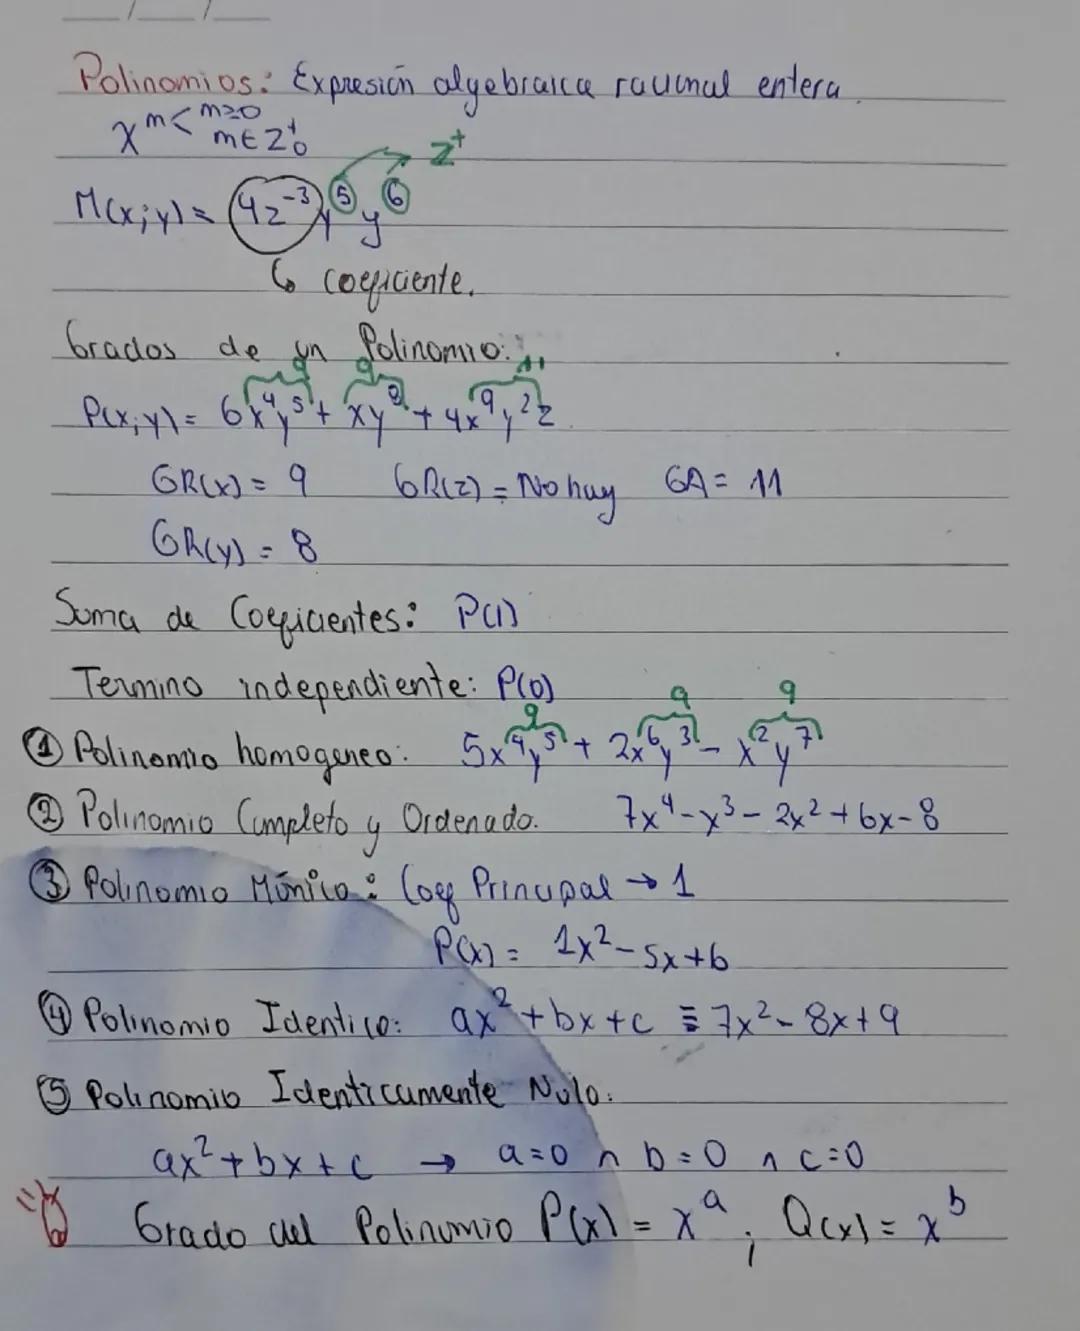 Polinomios: Expresión algebraica racional entera
x^m < m≥0
m∈Z₀⁺
Z⁺
M(x;y) = 4z⁻³ x⁵ y⁶
↳ coeficiente.
Grados de un Polinomio:
9 9 11
P(x;y) = 6x⁴y⁵ + xy⁸ + 4x⁹y²z
GR(x) = 9 GR(z) = No hay GA = 11
GR(y) = 8
Suma de Coeficientes: P(1)
Termino independiente: P(0)
9 9 9
① Polinomio homogeneo: 5x⁴y⁵ + 2x⁶y³ - x²y⁷
② Polinomio Completo y Ordenado. 7x⁴-x³-2x²+6x-8
③ Polinomio Mónico: Coef Principal → 1
P(x) = 1x²-5x+6
④ Polinomio Identico: ax²+bx+c ≡ 7x²-8x+9
⑤ Polinomio Identicamente Nulo:
ax²+bx+c → a=0 ∧ b=0 ∧ c=0
Grado del Polinomio P(x) = x^a ; Q(x) = x^b